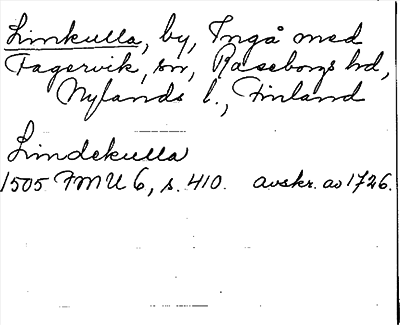 Linkulla, by, Ingå med
Fagervik, sn, Raseborgs hd,
Nylands l., Finland
Lindekulla
1505 FMU 6, s. 410. avskr. av 1726.